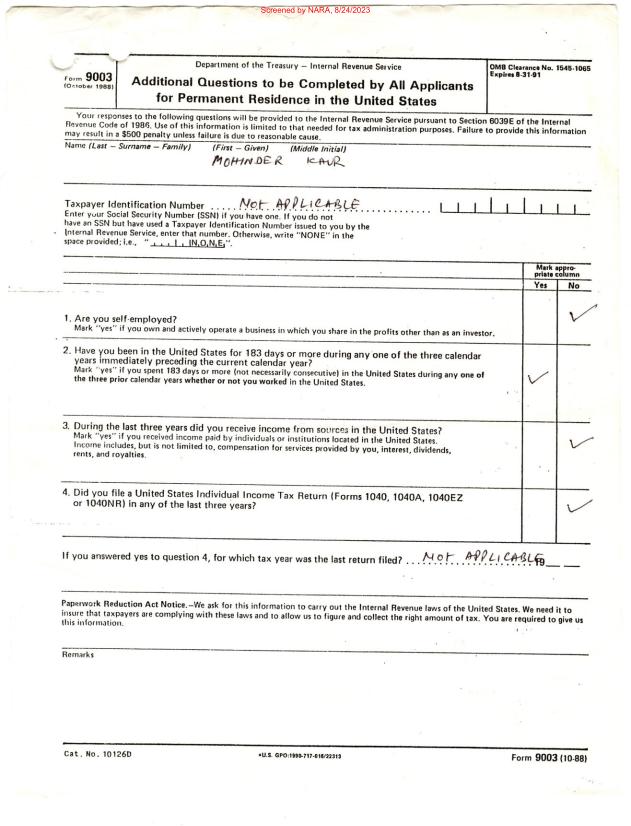 Screened by NARA, 8/24/2023
Form 9003
(October 1988)
Department of the Treasury – Internal Revenue Service
Additional Questions to be Completed by All Applicants
for Permanent Residence in the United States
OMB Clearance No. 1545-1065
Expires 8-31-91
Your responses to the following questions will be provided to the Internal Revenue Service pursuant to Section 6039E of the Internal
Revenue Code of 1986. Use of this information is limited to that needed for tax administration purposes. Failure to provide this information
may result in a $500 penalty unless failure is due to reasonable cause.
Name (Last – Surname – Family) (First – Given) (Middle Initial)
MOHINDER KAUR
Taxpayer Identification Number .... NOT APPLICABLE
Enter your Social Security Number (SSN) if you have one. If you do not
have an SSN but have used a Taxpayer Identification Number issued to you by the
Internal Revenue Service, enter that number. Otherwise, write "NONE" in the
space provided; i.e., " N,O,N,E,".
Mark appro-
priate column
Yes No
1. Are you self-employed?
Mark "yes" if you own and actively operate a business in which you share in the profits other than as an investor.
2. Have you been in the United States for 183 days or more during any one of the three calendar
years immediately preceding the current calendar year?
Mark "yes" if you spent 183 days or more (not necessarily consecutive) in the United States during any one of
the three prior calendar years whether or not you worked in the United States.
3. During the last three years did you receive income from sources in the United States?
Mark "yes" if you received income paid by individuals or institutions located in the United States.
Income includes, but is not limited to, compensation for services provided by you, interest, dividends,
rents, and royalties.
4. Did you file a United States Individual Income Tax Return (Forms 1040, 1040A, 1040EZ
or 1040NR) in any of the last three years?
If you answered yes to question 4, for which tax year was the last return filed? ... NOT APPLICABLE 19__ __
Paperwork Reduction Act Notice.–We ask for this information to carry out the Internal Revenue laws of the United States. We need it to
insure that taxpayers are complying with these laws and to allow us to figure and collect the right amount of tax. You are required to give us
this information.
Remarks
Cat. No. 10126D
*U.S. GPO:1990-717-016/22313
Form 9003 (10-88)